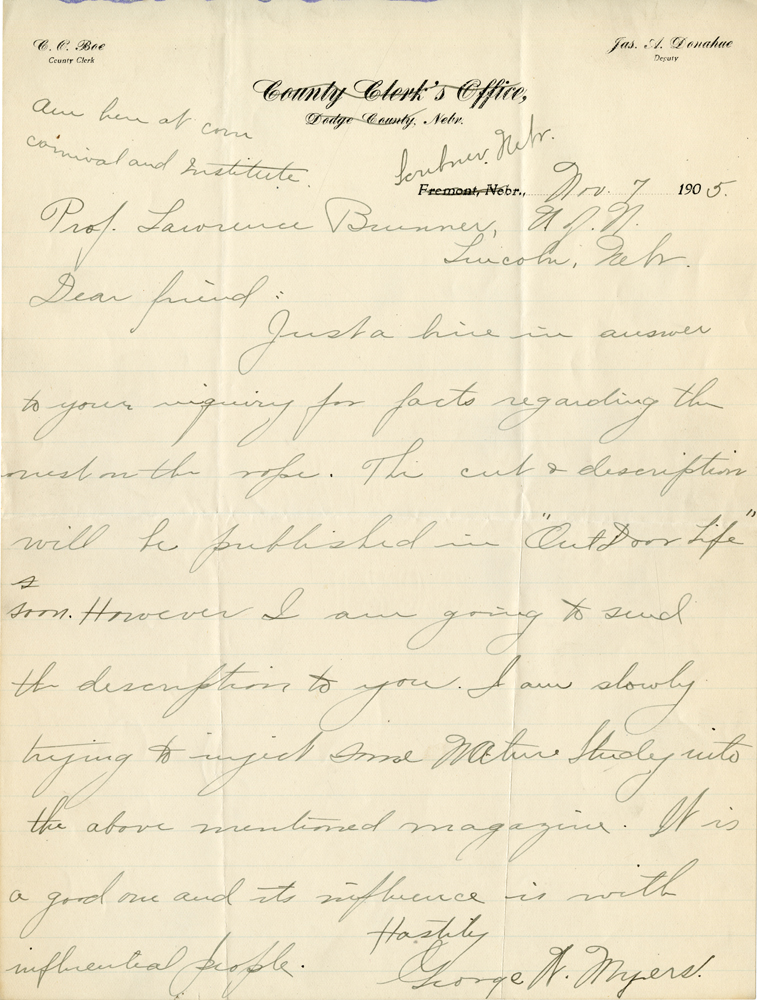 C. C. Boe
County Clerk
Jas. A. Donahue
Deputy
County Clerk's Office,
Dodge County, Nebr.
Am here at corn
carnival and Institute.
Scribner, Nebr.
Fremont, Nebr., Nov. 7 1905.
Prof. Lawrence Bruner, U of N.
Lincoln, Nebr.
Dear friend:
Just a line in answer
to your inquiry for facts regarding the
nest on the rope. The cut & description
will be published in "OutDoor Life"
s
soon. However I am going to send
the description to you. I am slowly
trying to inject some Nature Study into
the above mentioned magazine. It is
a good one and its influence is with
influential people.
Hastily
George W. Myers.